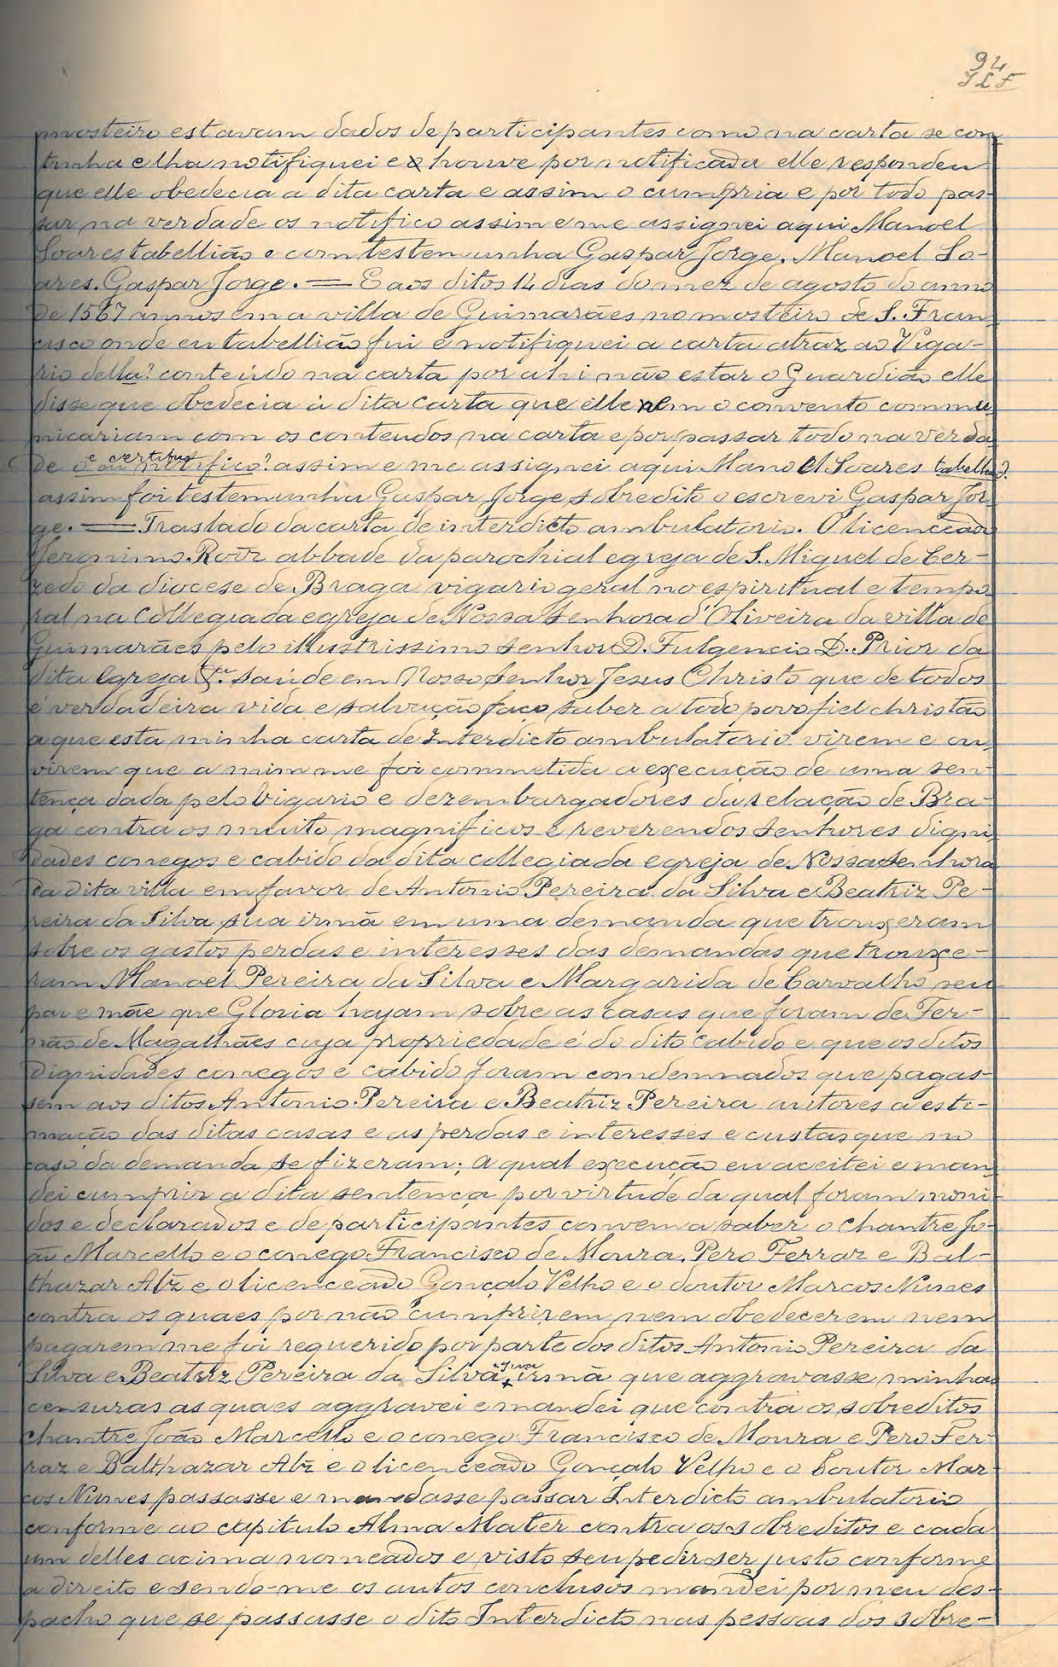 94
mosteiro estavam dados de participantes como na carta se con
tinha e lha notifiquei e a houve por notificada elle respondeu
que elle obedecia a dita carta e assim o cumpria e por todo pas-
sar na verdade os notifico assim e me assignei aqui Manoel
Soares tabellião e com testemunha Gaspar Jorge. Manoel So-
ares. Gaspar Jorge. = E aos ditos 14 dias do mez de agosto do anno
de 1567 annos em a villa de Guimarães no mosteiro de S. Fran
cisco onde eu tabellião fui e notifiquei a carta atraz ao Viga-
rio della? conteúdo na carta por ahi não estar o Guardião elle
disse que obedecia á dita carta que elle nem o convento commu
nicariam com os contendos na carta e por passar todo na verda
de o notifico? assim e me assignei aqui Manoel Soares tabellião?
assim foi testemunha Gaspar Jorge sobredito o escrevi Gaspar Jor
ge. = Traslado da carta de interdicto ambulatorio. O licenceado
Jeronimo Roiz abbade da parochial egreja de S. Miguel de Cer-
zedo da diocese de Braga vigario geral no espiritual e tempo
ral na Collegiada egreja de Nossa Senhora d'Oliveira da villa de
Guimarães pelo illustrissimo senhor D. Fulgencio D. Prior da
dita Egreja &ª. saúde em Nosso Senhor Jesus Christo que de todos
é verdadeira vida e salvação faço saber a todo povo fiel christão
a que esta minha carta de Interdicto ambulatorio virem e ou
virem que a mim me foi commetida a execução de uma sen
tença dada pelo Vigario e dezembargadores da relação de Bra
ga contra os muito magnificos e reverendos senhores digni
dades conegos e cabido da dita collegiada egreja de Nossa Senhora
da dita villa em favor de Antonio Pereira da Silva e Beatriz Pe-
reira da Silva sua irmã em uma demanda que trouxeram
sobre os gastos perdas e interesses das demandas que trouxe-
ram Manoel Pereira da Silva e Margarida de Carvalho seu
pae e mãe que Gloria hajam sobre as casas que foram de Fer-
não de Magalhães cuja propriedade é do dito cabido e que os ditos
Dignidades conegos e cabido foram condemnados que pagas-
sem aos ditos Antonio Pereira e Beatriz Pereira autores a esti-
mação das ditas casas e as perdas e interesses e custas que no
caso da demanda se fizeram; a qual execução eu aceitei e man
dei cumprir a dita sentença por virtude da qual foram moni
dos e declarados e de participantes convem a saber o Chantre Jo-
ão Marcello e o conego Francisco de Moura, Pero Ferraz e Bal-
thazar Alz e o licenceado Gonçalo Velho e o doutor Marcos Nunes
contra os quaes por não cumprirem nem obedecerem nem
pagarem me foi requerido por parte dos ditos Antonio Pereira da
Silva e Beatriz Pereira da Silva sua irmã que aggravasse minhas
censuras as quaes aggravei e mandei que contra os sobreditos
chantre João Marcello e o conego Francisco de Moura e Pero Fer-
raz e Balthazar Alz e o licenceado Gonçalo Velho e o Doutor Mar-
cos Nunes passasse e mandasse passar Interdicto ambulatorio
conforme ao capitulo Alma Mater contra os sobreditos e cada
um delles acima nomeados e visto seu pedir ser justo conforme
a direito e sendo-me os autos conclusos mandei por meu des-
pacho que se passasse o dito Interdicto nas pessoas dos sobre-